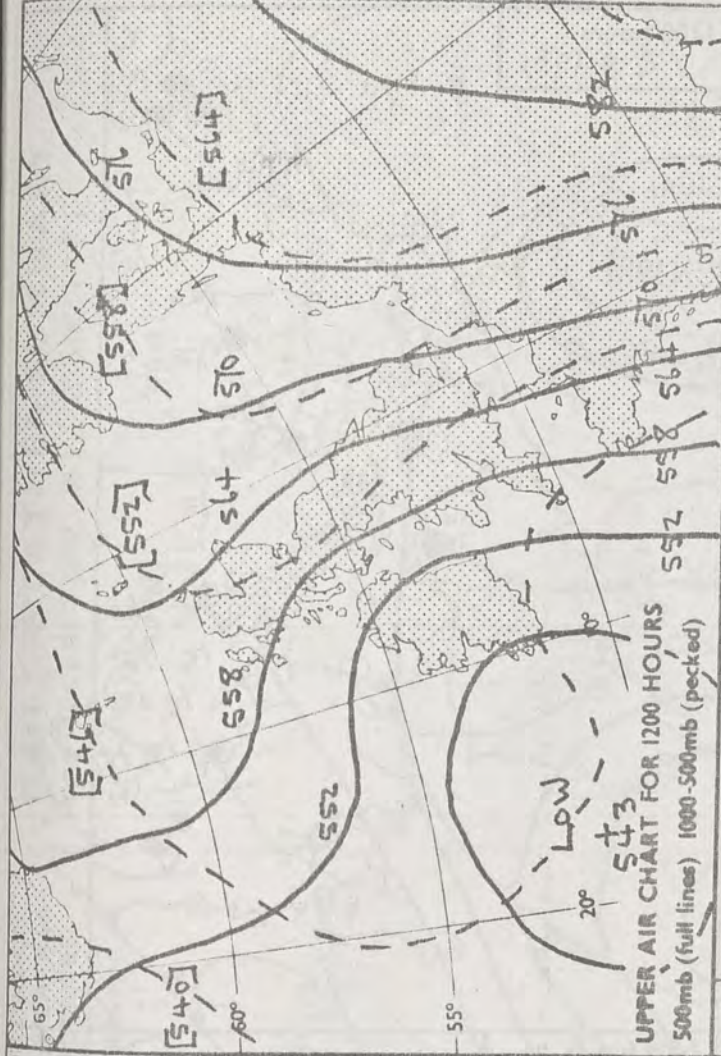 65°
60°
55°
20°
10°
0°
[540]
[546]
[552]
[558]
[564]
552
558
564
570
576
582
576
570
564
558
552
LOW
543
UPPER AIR CHART FOR 1200 HOURS
500mb (full lines) 1000-500mb (pecked)